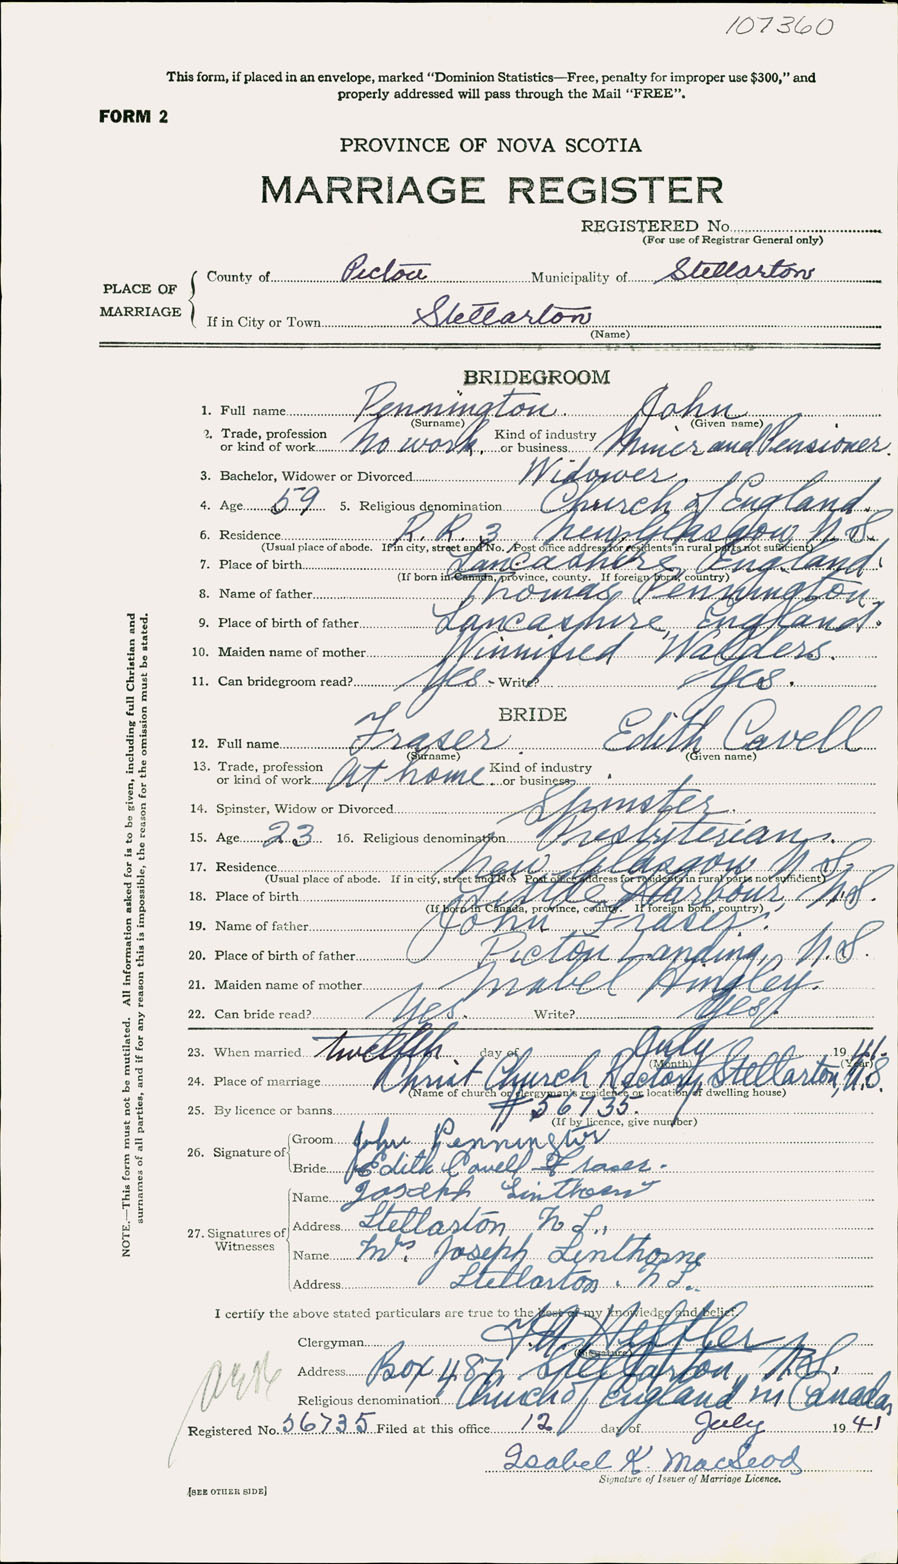 107360
This form, if placed in an envelope, marked “Dominion Statistics—Free, penalty for improper use $300,” and
properly addressed will pass through the Mail “FREE”.
FORM 2
PROVINCE OF NOVA SCOTIA
MARRIAGE REGISTER
REGISTERED No.
(For use of Registrar General only)
PLACE OF MARRIAGE
County of Pictou Municipality of Stellarton
If in City or Town Stellarton
(Name)
BRIDEGROOM
1. Full name Pennington John
(Surname) (Given name)
2. Trade, profession or kind of work No work, Kind of industry or business Miner and Pensioner.
3. Bachelor, Widower or Divorced Widower
4. Age 59 5. Religious denomination Church of England.
6. Residence R. R. 3 New Glasgow N.S.
(Usual place of abode. If in city, street and No. Post office address for residents in rural parts not sufficient)
7. Place of birth Lancashire, England.
(If born in Canada, province, county. If foreign born, country)
8. Name of father Thomas Pennington
9. Place of birth of father Lancashire, England.
10. Maiden name of mother Winnifred Walders.
11. Can bridegroom read? Yes - Write? Yes.
BRIDE
12. Full name Fraser. Edith Cavell
(Surname) (Given name)
13. Trade, profession or kind of work At home. Kind of industry or business
14. Spinster, Widow or Divorced Spinster.
15. Age 23 16. Religious denomination Presbyterian.
17. Residence New Glasgow N.S.
(Usual place of abode. If in city, street and No. Post office address for residents in rural parts not sufficient)
18. Place of birth Little Harbour N.S.
(If born in Canada, province, county. If foreign born, country)
19. Name of father John Fraser.
20. Place of birth of father Picton Landing, N.S.
21. Maiden name of mother Mabel Hingley.
22. Can bride read? Yes. Write? Yes.
23. When married twelfth day of July 1941.
(Month) (Year)
24. Place of marriage Christ Church Rectory, Stellarton, N.S.
(Name of church or clergyman's residence or location of dwelling house)
25. By licence or banns # 56735.
(If by licence, give number)
26. Signature of Groom John Pennington
Bride Edith Cavell Fraser.
27. Signatures of Witnesses
Name Joseph Linthorne
Address Stellarton N.S.,
Name Mrs. Joseph Linthorne
Address Stellarton. N.S.
I certify the above stated particulars are true to the best of my knowledge and belief.
Clergyman
(Signature)
Address Box 487 Stellarton, N.S.
Religious denomination "Church of England" in Canada,
Registered No. 56735 Filed at this office 12 day of July 1941
Isabel K. MacLeod
Signature of Issuer of Marriage Licence.
[SEE OTHER SIDE]
NOTE.—This form must not be mutilated. All information asked for is to be given, including full Christian and
surnames of all parties, and if for any reason this is impossible, the reason for the omission must be stated.